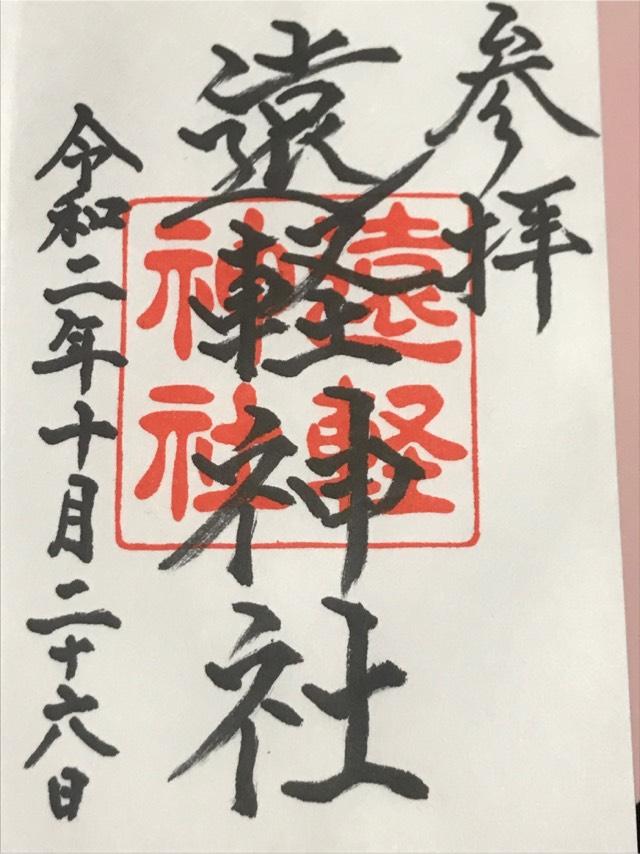 参拝
遠軽神社
遠軽
神社
令和二年十月二十六日